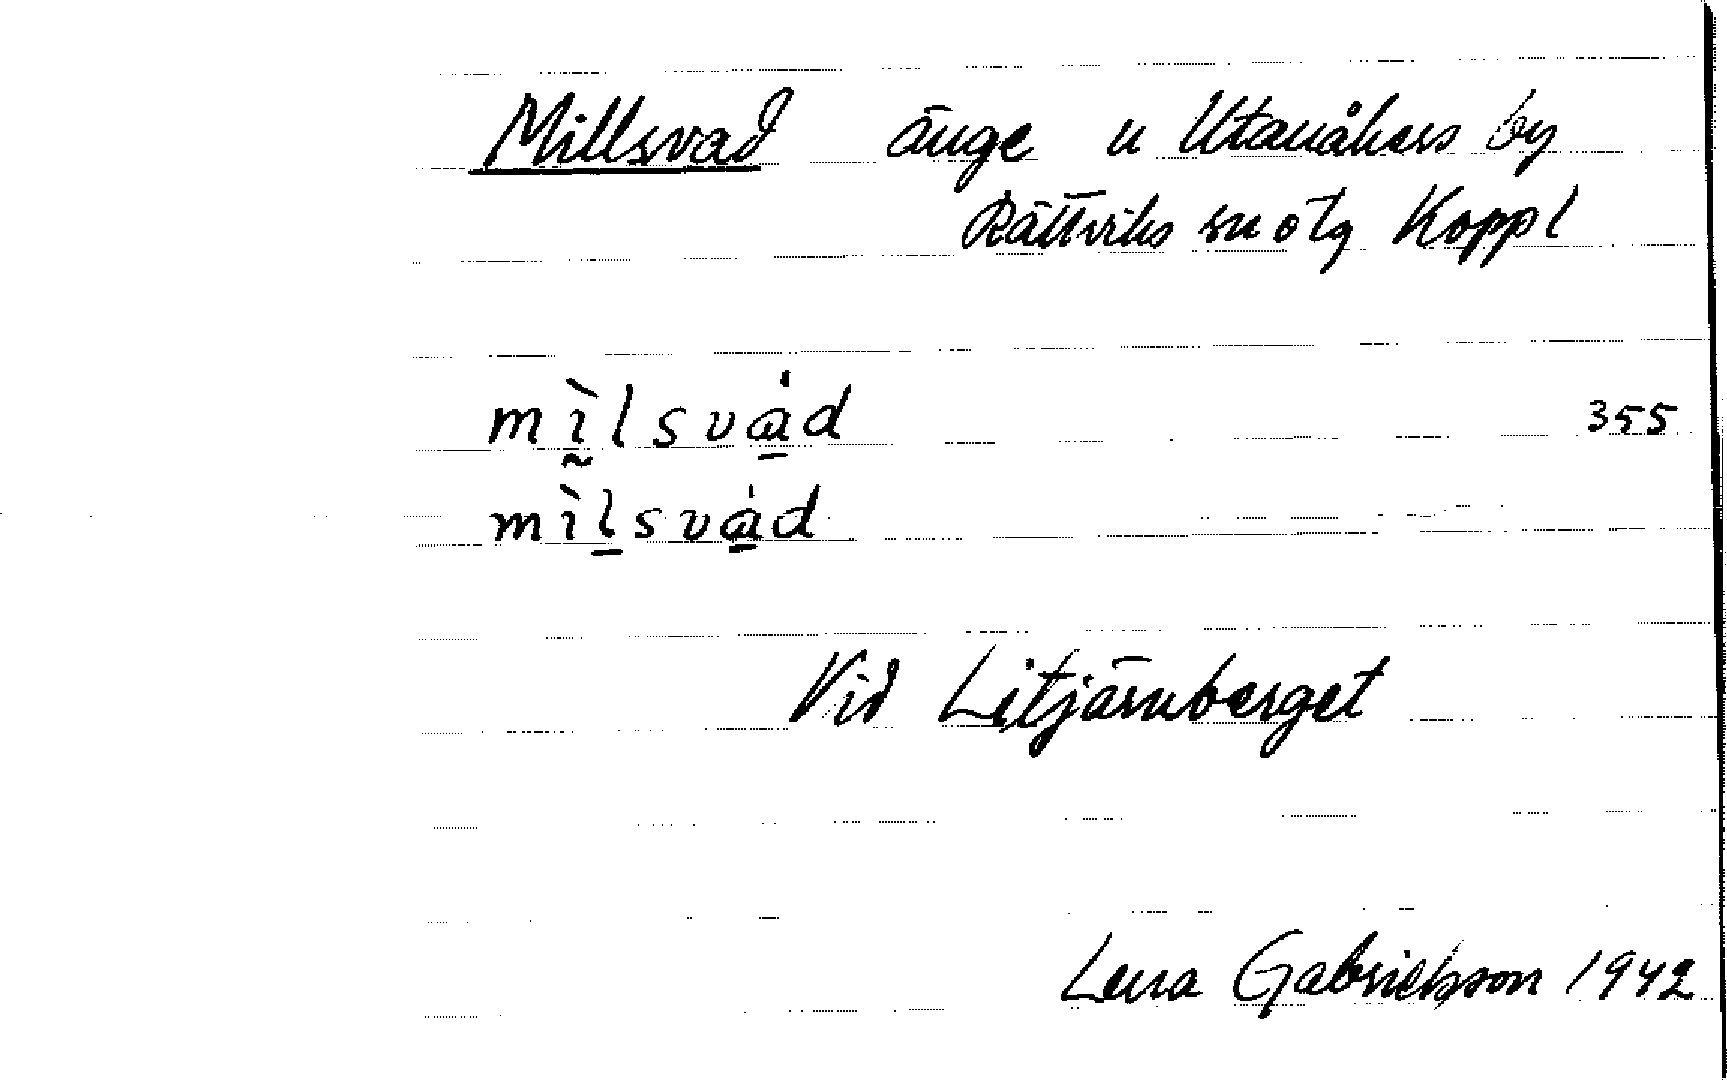 Millsvad änge u Utanåkers by
Rättviks sn o tg Koppl
mìlsvȧd 355
mìlsvȧd
Vid Litjärnberget
Lena Gabrielsson 1942